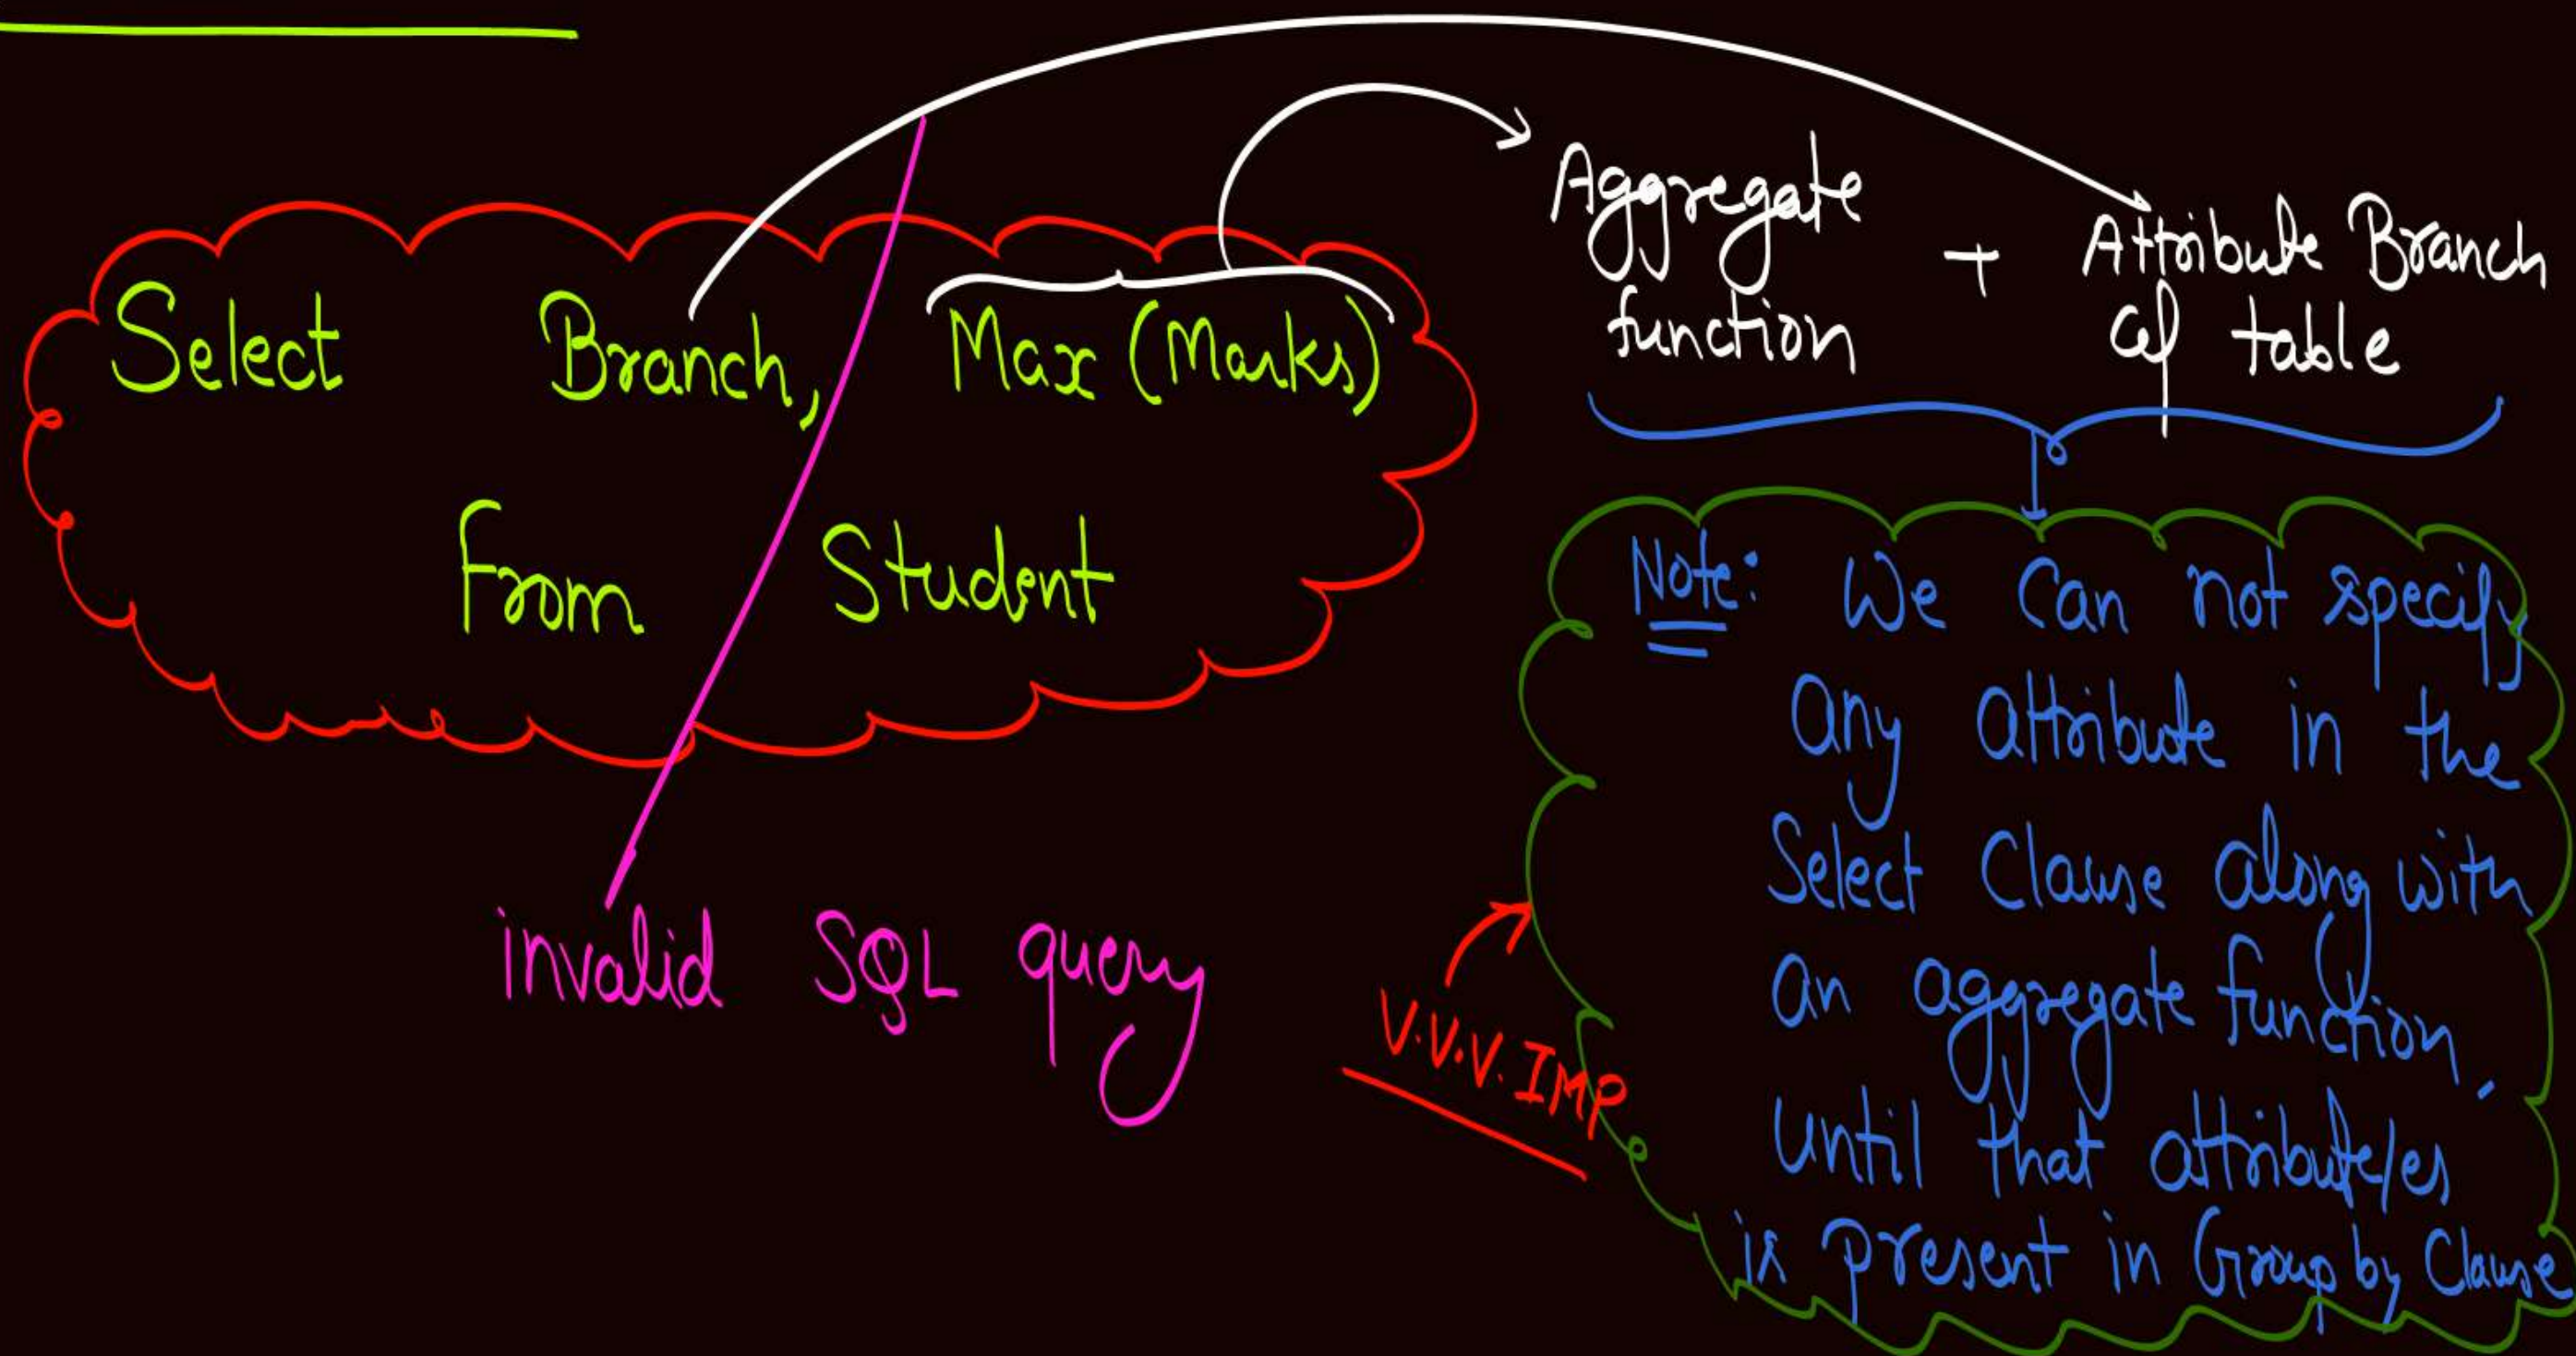 Select Branch, Max (Marks)
From Student
invalid SQL query
Aggregate
function
+
Attribute Branch
of table
Note: We Can not specify
any attribute in the
Select Clause along with
an aggregate function,
until that attribute/es
is present in Group by Clause
V.V.V. IMP